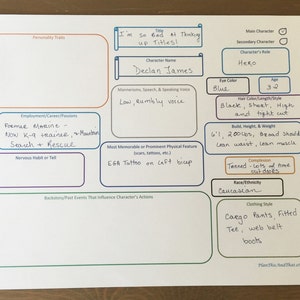 Personality Traits
Title
I'm so Bad at Thinking
up Titles!
Main Character
Secondary Character
Character Name
Declan James
Character's Role
Hero
Eye Color
Blue
Age
32
Mannerisms, Speech, & Speaking Voice
Low, rumbly voice
Hair Color/Length/Style
Black, Short, High
and tight cut
Employment/Career/Passions
Former Marine -
Now K-9 trainer, & Mountain
Search & Rescue
Build, Height, & Weight
6'1, 200lbs, Broad should
Lean waist, lean muscle
Nervous Habit or Tell
Most Memorable or Prominent Physical Feature
(scars, tattoos, etc.)
EGA Tattoo on Left bicep
Complexion
Tanned - Lots of time
outdoors
Race/Ethnicity
Caucasian
Backstory/Past Events That Influence Character's Actions
Clothing Style
Cargo Pants, Fitted
Tee, web belt
boots